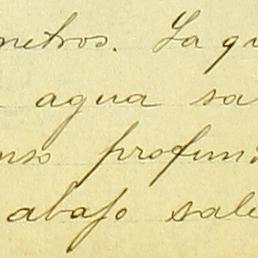 metros. La qu
agua sa
nso profun
abajo sale